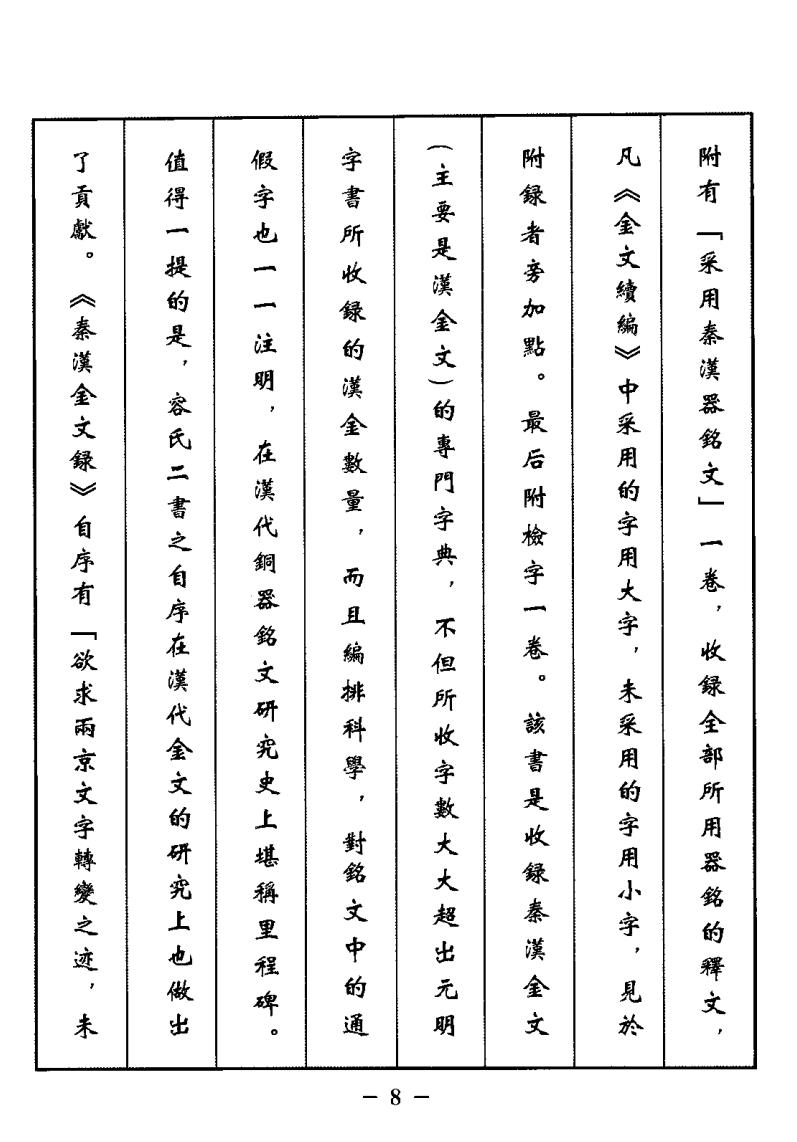 附有「采用秦漢器銘文」一卷，收録全部所用器銘的釋文，
凡《金文續編》中采用的字用大字，未采用的字用小字，見於
附録者旁加點。最后附檢字一卷。該書是收録秦漢金文
(主要是漢金文)的專門字典，不但所收字數大大超出元明
字書所收録的漢金數量，而且編排科學，對銘文中的通
假字也一一注明，在漢代銅器銘文研究史上堪稱里程碑。
值得一提的是，容氏二書之自序在漢代金文的研究上也做出
了貢獻。《秦漢金文録》自序有「欲求兩京文字轉變之迹，未
– 8 –